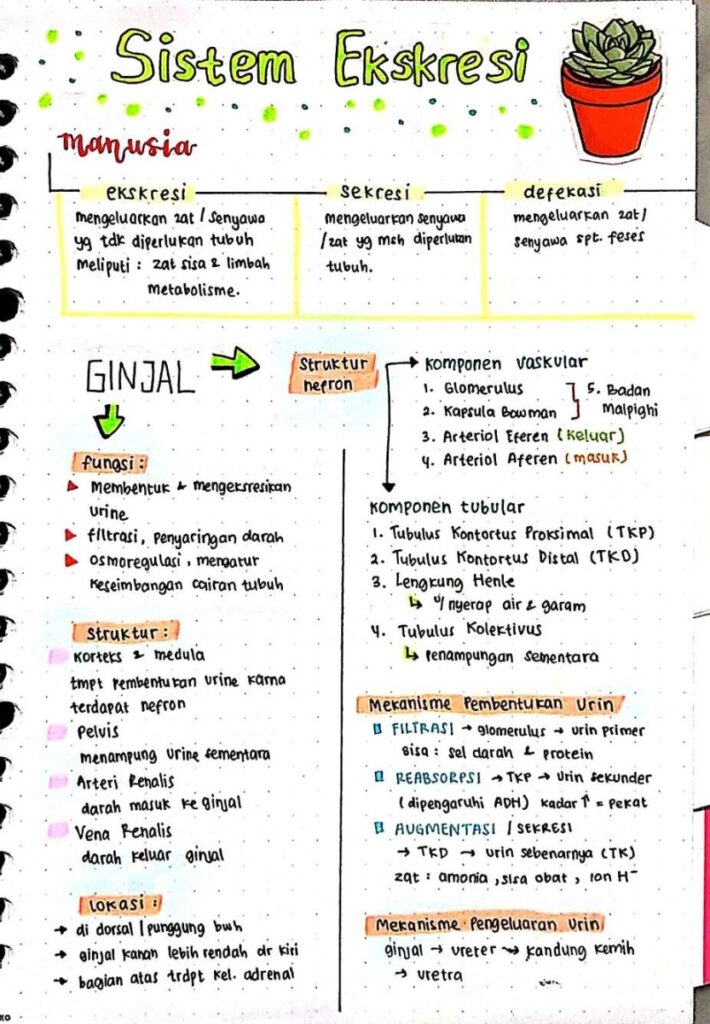 Sistem Ekskresi
manusia
ekskresi
mengeluarkan zat / senyawa
yg tdk diperlukan tubuh
meliputi : zat sisa & limbah
metabolisme.
sekresi
mengeluarkan senyawa
/zat yg msh diperlukan
tubuh.
defekasi
mengeluarkan zat/
senyawa spt. feses
GINJAL
fungsi :
Membentuk & mengeksresikan
urine
filtrasi, penyaringan darah
osmoregulasi, mengatur
keseimbangan cairan tubuh
Struktur :
Korteks & medula
tmpt pembentukan urine karna
terdapat nefron
Pelvis
menampung urine sementara
Arteri Renalis
darah masuk ke ginjal
Vena Renalis
darah keluar ginjal
Lokasi :
→ di dorsal / punggung bwh
→ ginjal kanan lebih rendah dr kiri
→ bagian atas trdpt kel. adrenal
Struktur
nefron
Komponen vaskular
1. Glomerulus
2. Kapsula Bowman
5. Badan
Malpighi
3. Arteriol Eferen (keluar)
4. Arteriol Aferen (masuk)
Komponen tubular
1. Tubulus Kontortus Proksimal (TKP)
2. Tubulus Kontortus Distal (TKD)
3. Lengkung Henle
↳ u/ nyerap air & garam
4. Tubulus Kolektivus
↳ penampungan sementara
Mekanisme Pembentukan Urin
FILTRASI → glomerulus → urin primer
sisa : sel darah & protein
REABSORPSI → TKP → urin sekunder
(dipengaruhi ADH) kadar ↑ = pekat
AUGMENTASI / SEKRESI
→ TKD → urin sebenarnya (TK)
zat : amonia, sisa obat, ion H⁻
Mekanisme Pengeluaran Urin
ginjal → ureter → kandung kemih
→ uretra